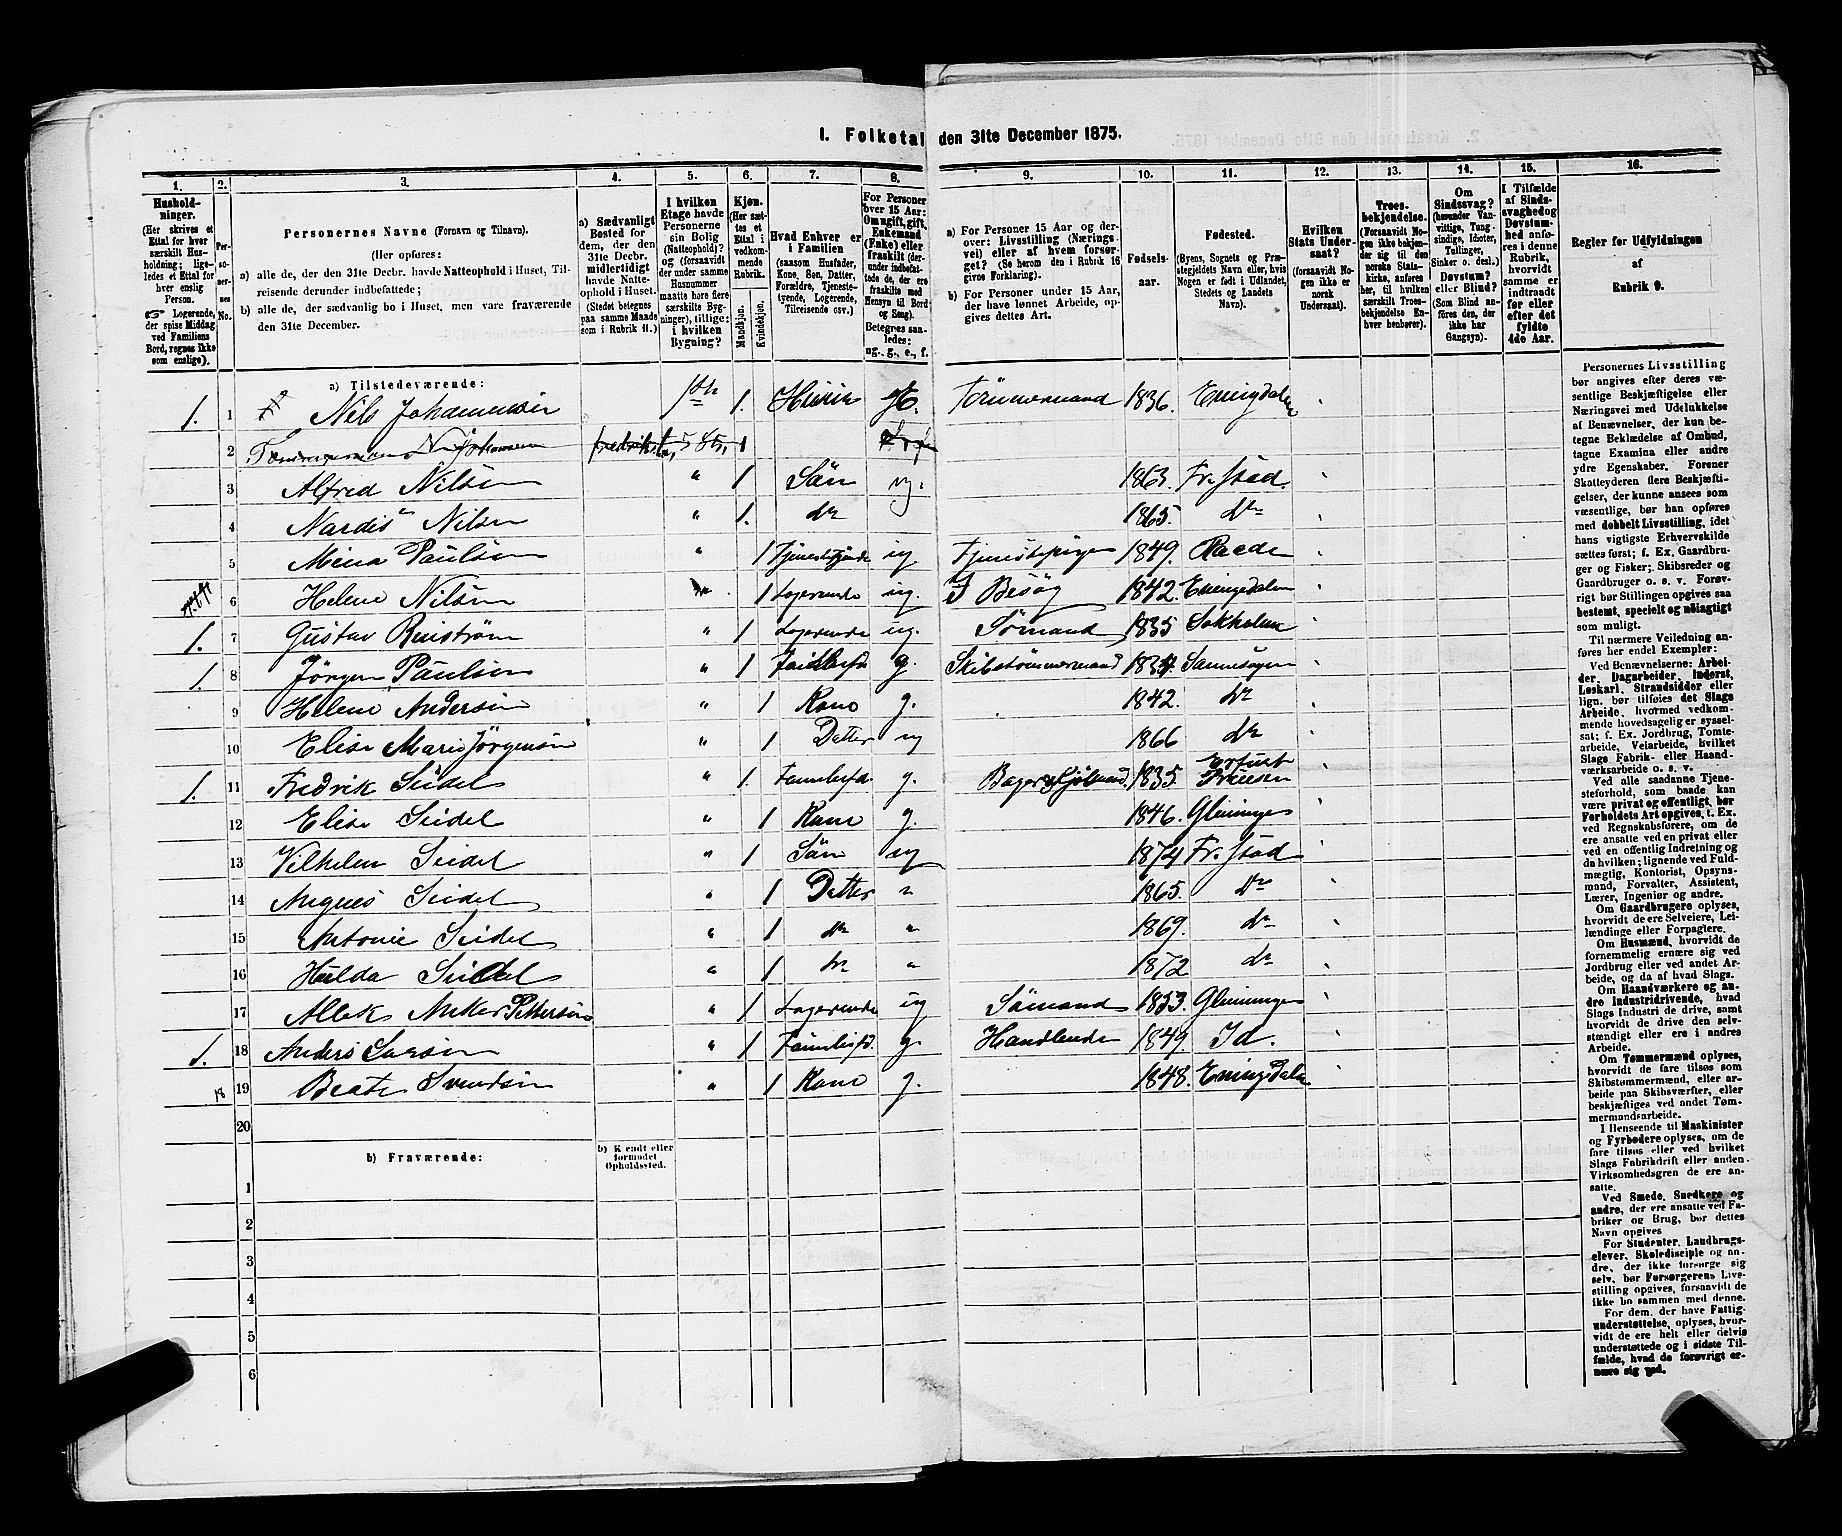 1. Folketal den 31te December 1875.
1. 2. 3. 4. 5. 6. 7. 8. 9. 10. 11. 12. 13. 14. 15. 16.
Husholdninger.
(Her skrives et
Ettal for hver
særskilt Husholdning;
ligeledes et Ettal for
enslig Person.
☞ Logerende,
der spise Middag
ved Familiens
Bord, regnes ikke
som enslige).
Personernes No.
Personernes Navne (Fornavn og Tilnavn).
(Her opføres:
a) alle de, der den 31te Decbr. havde Natteophold i Huset, Tilreisende derunder indbefattede;
b) alle de, der sædvanlig bo i Huset, men vare fraværende
den 31te December.
a) Sædvanligt
Bosted for
dem, der den
31te Decbr.
midlertidigt
havde Natteophold i Huset.
(Stedet betegnes
paa samme Maade
som i Rubrik 11.)
I hvilken
Etage havde
Personerne
sin Bolig
(Natteophold)?
og (forsaavidt
der under samme
Husnummer
maatte høre flere
særskilte Bygninger), tillige:
i hvilken
Bygning?
Kjøn.
(Her sættes et
Ettal i
vedkommende
Rubrik.
Mandkjøn.
Kvindekjøn.
Hvad Enhver er
i Familien
(saasom Husfader,
Kone, Søn, Datter,
Forældre, Tjenestetyende, Logerende,
Tilreisende osv.)
For Personer
over 15 Aar:
Om ugift, gift,
Enkemand
(Enke) eller
fraskilt (derunder indbefattede de, der ere
fraskilte med
Hensyn til Bord
og Seng).
Betegnes saaledes:
ug., g., e., f.
a) For Personer 15 Aar og derover: Livsstilling (Næringsvei) eller af hvem forsørget? (Se herom den i Rubrik 16
givne Forklaring).
b) For Personer under 15 Aar,
der have lønnet Arbeide, opgives dettes Art.
Fødselsaar.
Fødested.
(Byens, Sognets og Præstegjeldets Navn eller, hvis
Nogen er født i Udlandet,
Stedets og Landets
Navn).
Hvilken
Stats Undersaat?
(forsaavidt Nogen ikke er
norsk
Undersaat).
Troesbekjendelse.
(Forsaavidt Nogen ikke bekjender sig til den
norske Statskirke, anføres
her, til hvilken
særskilt Troesbekjendelse Enhver henhører).
Om
Sindssvag?
(herunder Vanvittige, Tungsindige, Idioter,
Tullinger,
Sinker o. desl.)
Døvstum?
eller Blind?
(Som Blind anføres den, der
ikke har
Gangsyn).
I Tilfælde
af Sindssvaghed og
Døvstumhed anføres i denne
Rubrik,
hvorvidt
samme er
indtraadt
før eller
efter det
fyldte
4de Aar.
Regler for Udfyldningen
af
Rubrik 9.
a) Tilstedeværende:
1. 1 Nils Johannessen 1. Tømmermand 1836. Eningdalen
2
3 Alfred Nilsen " 1 Søn ug. 1863. Fr. stad.
4 Nardis Nilsen " 1. do 1865. do
5 Mina Paulsen " 1 ug 1849. Raade
6 Helene Nilsen 1 Logerende ug. I Besøg 1842. Eningedalen
1. 7 Gustav " 1 Logerende ug. Sømand 1835
1. 8 Jörgen Paulsen " 1 g. Skibstømmermand Sannesogen
9 Helene Andersen " 1 Kone g. 1842. do
10 Elise Marie Jörgensen " 1 Datter ug 1866 do
1. 11 Fredrik Seidel " 1. Familiefd. g. 1835 Erfurt Preusen
12 Elise Seidel " 1 Kone g. 1846. Glemminge
13 Vilhelm Seidel " 1 Søn ug 1874 Fr. stad
14 Seidel " 1 Datter " 1865. do
15 Antonie Seidel " 1 do " 1869. do
16 Hulda Seidel " 1 do " 1872 do
17 Anker Pettersen " 1 Logerende ug Sømand 1853. Glemminge
1. 18 Anders " 1 Familiefd. g. Handlende 1849. Id.
18 19 Beate Svendsen " 1 Kone g. 1848. Eningdalen
20
b) Fraværende: b) Kjendt eller
formodet
Opholdssted.
1
2
3
4
5
6
Personernes Livsstilling
bør angives efter deres væsentlige Beskjæftigelse eller
Næringsvei med Udelukkelse
af Benævnelser, der kun betegne Beklædelse af Ombud,
tagne Examina eller andre
ydre Egenskaber. Forener
Skatteyderen flere Beskjæftigelser, der kunne ansees som
væsentlige, bør han opføres
med dobbelt Livsstilling, idet
hans vigtigste Erhvervskilde
sættes først; f. Ex. Gaardbruger og Fisker; Skibsreder og
Gaardbruger o. s. v. Forøvrigt bør Stillingen opgives saa
bestemt, specielt og nøiagtigt
som muligt.
Til nærmere Veiledning anføres her endel Exempler:
Ved Benævnelserne: Arbeider, Dagarbeider, Inderst,
Løskarl, Strandsidder eller
lign. bør tilføies det Slags
Arbeide, hvormed vedkommende hovedsagelig er sysselsat; f. Ex. Jordbrug, Tomtearbeide, Veiarbeide, hvilket
Slags Fabrik- eller Haandværksarbeide o. s. v.
Ved alle saadanne Tjenesteforhold, som baade kan
være privat og offentligt, bør
Forholdets Art opgives, t. Ex.
ved Regnskabsførere, om de
ere ansatte ved en privat eller
ved en offentlig Indretning og
da hvilken; lignende ved Fuldmægtig, Kontorist, Opsynsmand, Forvalter, Assistent,
Lærer, Ingeniør og andre.
Om Gaardbrugere oplyses,
hvorvidt de ere Selveiere, Leilændinge eller Forpagtere.
Om Husmænd, hvorvidt de
fornemmelig ernære sig ved
Jordbrug eller ved andet Arbeide, og da af hvad Slags.
Om Haandværkere og andre Industridrivende, hvad
Slags Industri de drive, samt
hvorvidt de drive den selvstændigt eller ere i andres
Arbeide.
Om Tømmermænd oplyses,
hvorvidt de fare tilsøs som
Skibstømmermænd, eller arbeide paa Skibsværfter, eller
beskjæftiges ved andet Tømmermandsarbeide.
I Henseende til Maskinister
og Fyrbødere oplyses, om de
fare tilsøs eller ved hvilket
Slags Fabrikdrift eller anden
Virksomhedsgren de ere ansatte.
Ved Smede, Snedkere og
andre, der ere ansatte ved Fabriker og Brug, bør dettes
Navn opgives
For Studenter, Landbrugselever, Skoledisciple og andre, der ikke forsørge sig
selv, bør Forsørgerens Livsstilling opgives, forsaavidt de
ikke bo sammen med denne.
For dem, der have Fattigunderstøttelse, oplyses, hvorvidt de ere helt eller delvis
understøttede og i sidste Tilfælde, hvad de forøvrigt ernære sig ved.